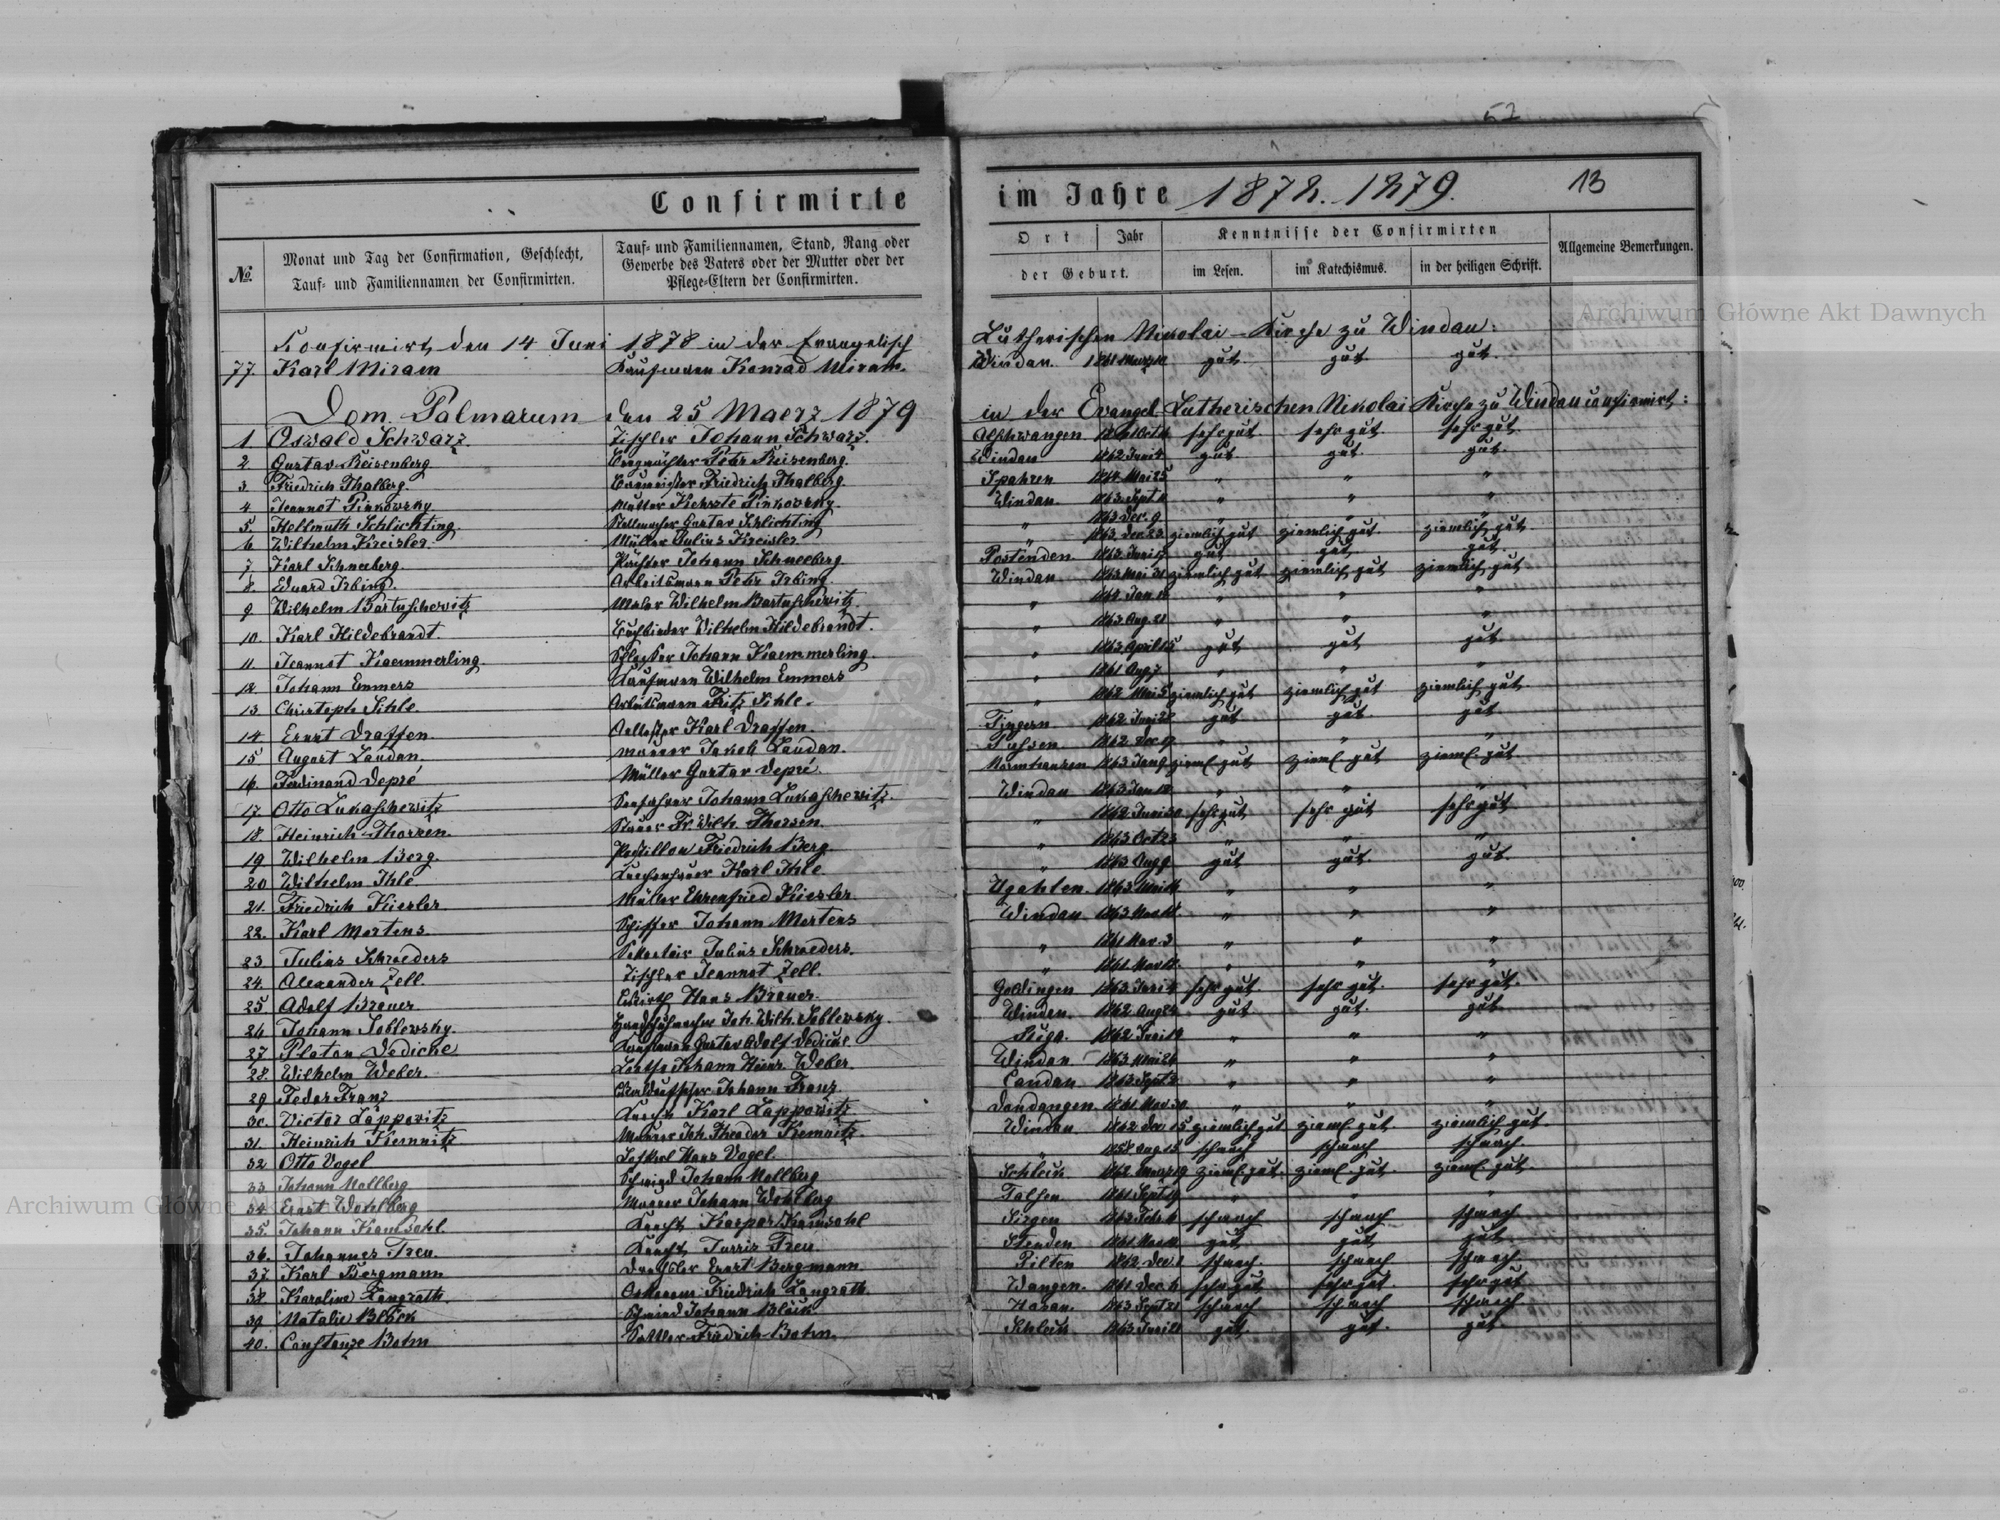 52
Confirmirte im Jahre 1878. 1879. 13
No. Monat und Tag der Confirmation, Geschlecht, Tauf- und Familiennamen der Confirmirten. Tauf- und Familiennamen, Stand, Rang oder Gewerbe des Vaters oder der Mutter oder der Pflege-Eltern der Confirmirten. Ort Jahr der Geburt. Kenntnisse der Confirmirten im Lesen. im Katechismus. in der heiligen Schrift. Allgemeine Bemerkungen.
Archiwum Główne Akt Dawnych
Konfirmirt den 14 Juni 1878 in der Evangelisch Lutherischen Nikolai-Kirche zu Windau:
77. Karl Miram Kaufmann Konrad Miram. Windau. 1861 gut. gut gut.
Dom. Palmarum den 25 Maerz 1879 in der Evangel. Lutherischen Nikolai Kirche zu Windau confirmirt:
1. Oswald Schwarz Tischler Johann Schwarz. Alschwangen sehr gut. sehr gut. sehr gut
2. Gustav Reisenberg Petr Reisenberg. Windau 1862 Juni 4 gut. gut. gut.
3. Friedrich Thalberg. Friedrich Thalberg. Spahren Mai 25 " " "
4. Jeannot Pinkowsky Pinkowsky. Windau 1863 Sept " " "
5. Hellmuth Schlichting. Gustav Schlichting " 1863 Dec. 9 " " "
6. Wilhelm Kreisler. Müller Julius Kreisler " 1863 Dec 23 ziemlich gut ziemlich gut. ziemlich gut
7. Karl Schneeberg Johann Schneeberg Postenden. 1863 Juni gut gut. gut
8. Eduard Irbing. Arbeitsmann Petr Irbing. Windau 1863 Mai 31 ziemlich gut ziemlich gut ziemlich gut
9. Wilhelm Bartuschewitz Maler Wilhelm Bartuschewitz. " 1864 Jan. " " "
10. Karl Hildebrandt. Buchbinder Wilhelm Hildebrandt. " 1863 Aug. 21 " " "
11. Jeannot Kaemmerling. Schlosser Johann Kaemmerling. " 1863 April 15 gut gut gut
12. Johann Emmers Kaufmann Wilhelm Emmers " 1861 Aug 7 " " "
13. Christoph Sihle. Arbeitsmann Fritz Sihle. " 1862 Mai 5 ziemlich gut ziemlich gut ziemlich gut.
14. Ernst Draffen. Karl Draffen. 1862 Juni gut gut. gut
15 August Laudan. Maurer Jakob Laudan. 1862 Dec " " "
16. Ferdinand Depré Müller Gustav Depré. 1863 Jan 9 zieml. gut zieml. gut zieml. gut
17. Otto Lukaschewitz Seefahrer Johann Lukaschewitz. Windau 1863 Jan 12 " " "
18. Heinrich Thorsen. Fr. Wilh. Thorsen. " 1862 Juni 30 sehr gut sehr gut sehr gut
19 Wilhelm Berg. Postillon Friedrich Berg " 1863 Oct " " "
20 Wilhelm Ihle Karl Ihle " 1863 Aug 9 gut gut. gut.
21. Friedrich Kiesler Müller Ehrenfried Kiesler. Ugahlen. 1863 Mai " " "
22. Karl Mertens Schiffer Johann Mertens Windau " " "
23 Julius Schroeders Sekretair Julius Schroeders. " 1861 Nov. 3 " " "
24. Alexander Zell. Tischler Jeannot Zell. " 1861 Nov " " "
25 Adolf Brauer Hans Brauer. Goldingen 1863 Juni sehr gut. sehr gut. sehr gut.
26 Johann Soblewsky. Handschuhmacher Joh. Wilh. Soblewsky. Windau. 1862 Aug gut gut. gut
27 Platon Dedicke Kaufmann Gustav Adolf Dedicke. Riga. 1862 Juni 19 " " "
28. Wilhelm Weber. Lootse Johann Heinr. Weber. Windau 1863 Mai 26 " " "
29 Fedor Franz Johann Franz Candau 1863 Sept " " "
30. Victor Lappowitz Knecht Karl Lappowitz. Dondangen. 1861 Nov. 30 " " "
31. Heinrich Kiemnitz Maurer Joh. Theodor Kiemnitz. Windau 1862 Dec. 15 ziemlich gut zieml. gut ziemlich gut.
32 Otto Vogel Hans Vogel. " 1858 Aug 15 schwach schwach schwach.
33. Johann Mollberg Schmied Johann Mollberg Schleck 1862 März 19 zieml. gut. zieml. gut. zieml. gut.
Archiwum Główne
34. Ernst Wohlberg Maurer Johann Wohlberg Talsen 1861 Sept 19 " " "
35. Johann Kamsohl. Knecht Kaspar Kamsohl Sirgen 1863 Febr. 6 schwach schwach schwach
36. Johannes Treu. Knecht Jurris Treu Stenden 1861 gut gut gut
37. Karl Bergmann Drechsler Ernst Bergmann Pilten 1862 Dec. 1 schwach. schwach schwach
38 Karoline Langrath. Friedrich Langrath. Wangen. 1861 Dec. 6 sehr gut sehr gut sehr gut
39. Natalie Block Schmied Johann Block. Hasau. 1863 Sept 21 schwach schwach schwach
40. Constanze Bohm Sattler Friedrich Bohm. Schleck. 1863 Juni gut. gut. gut